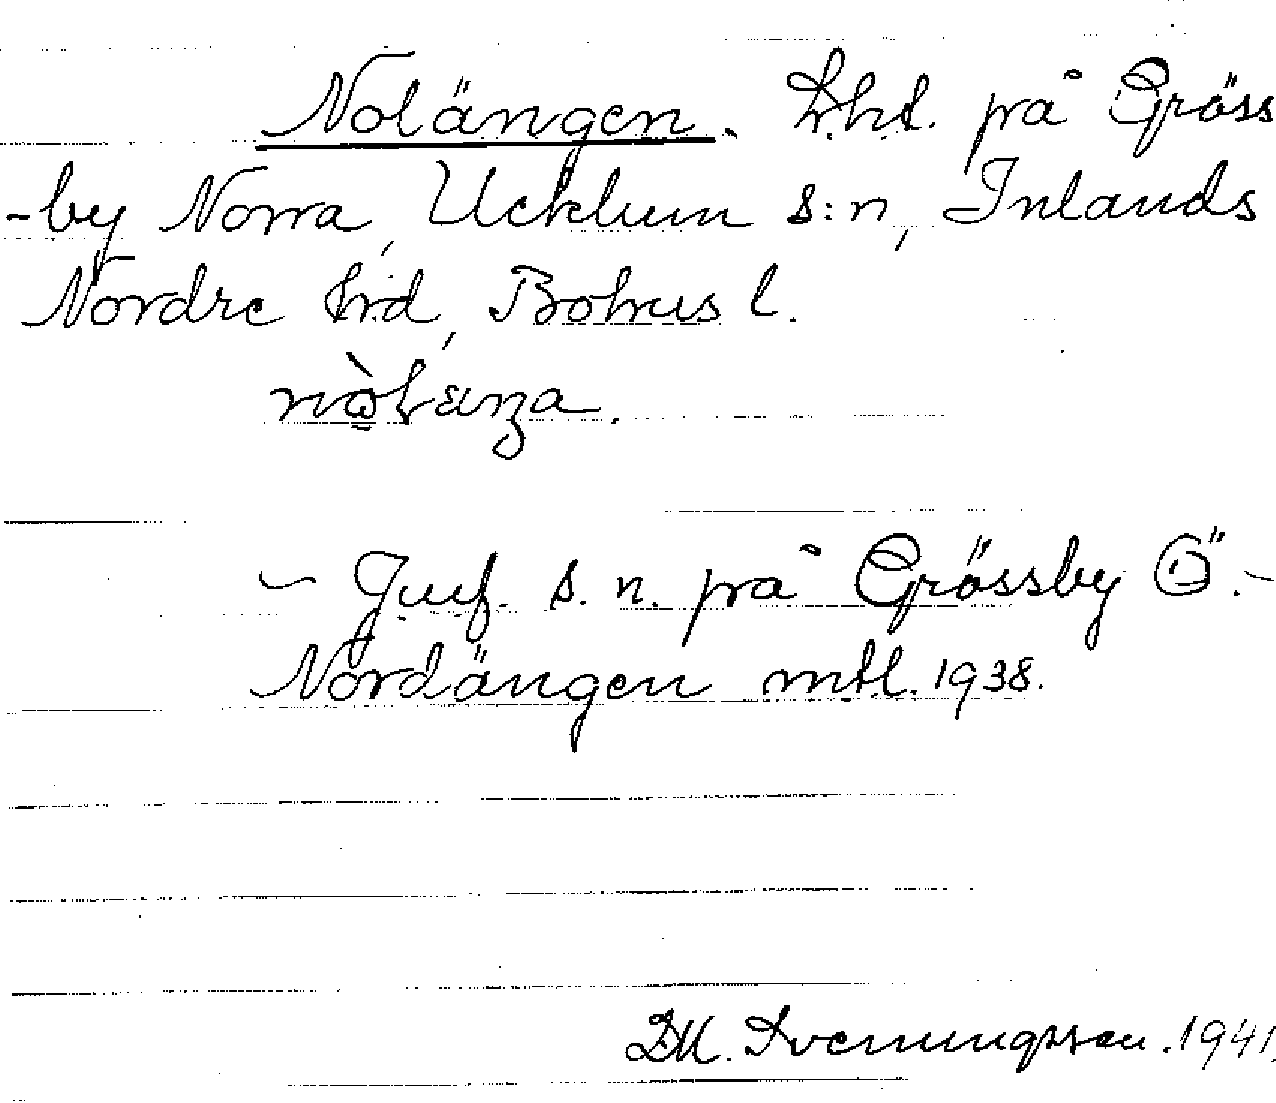 Nolängen. Lht. på Gröss
-by Norra, Ucklum s:n, Inlands
Nordre hd, Bohus l.
- Jmf. s. n. på Grössby Ö. -
Nordängen mtl. 1938.
Svenungsson. 1941.